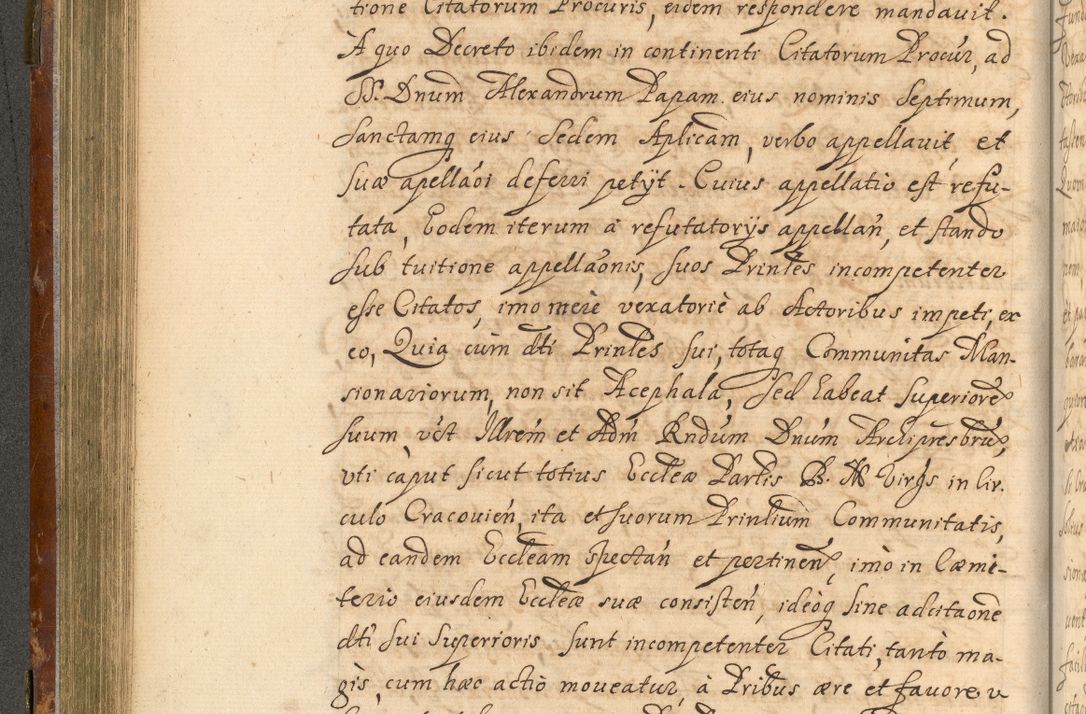 trone Citatorum Procuris, eidem respondere mandavit.
A quo Decreto ibidem in continenti Citatorum Procur, ad
SS. Dnum Alexandrum Papam eius nominis Septimum,
Sanctamq eius Sedem Aplicam, verbo appellavit et
suæ apellaoi deferri petÿt. Cuius appellatio est refu-
tata, Eodem iterum à refutatorÿs appellan, et stando
sub tuitione appellaonis, suos Prinles incompetenter
esse Citatos, imo meiè vexatoriè ab Actoribus impeti, ex
eo, Quia cum dti Prinles sui, totaq Communitas Man-
sionariorum, non sit Acephala, sed habeat Superiorē
suum vst Illrem et Adm Rndum Dnum Archipresbrum,
uti caput sicut totius Eccleæ Partis B. M Virgs in Cir.
culo Cracovien, ita et suorum Prinlium Communitatis,
ad eandem Eccleam spectan et pertinen, imo in Cæmi-
terio eiusdem Eccleæ suæ consisten, ideoq sine adcitaone
dti sui Superioris sunt incompetenter Citati, tanto ma-
gis, cum hæc actio moveatur, à Pribus ære et favore v